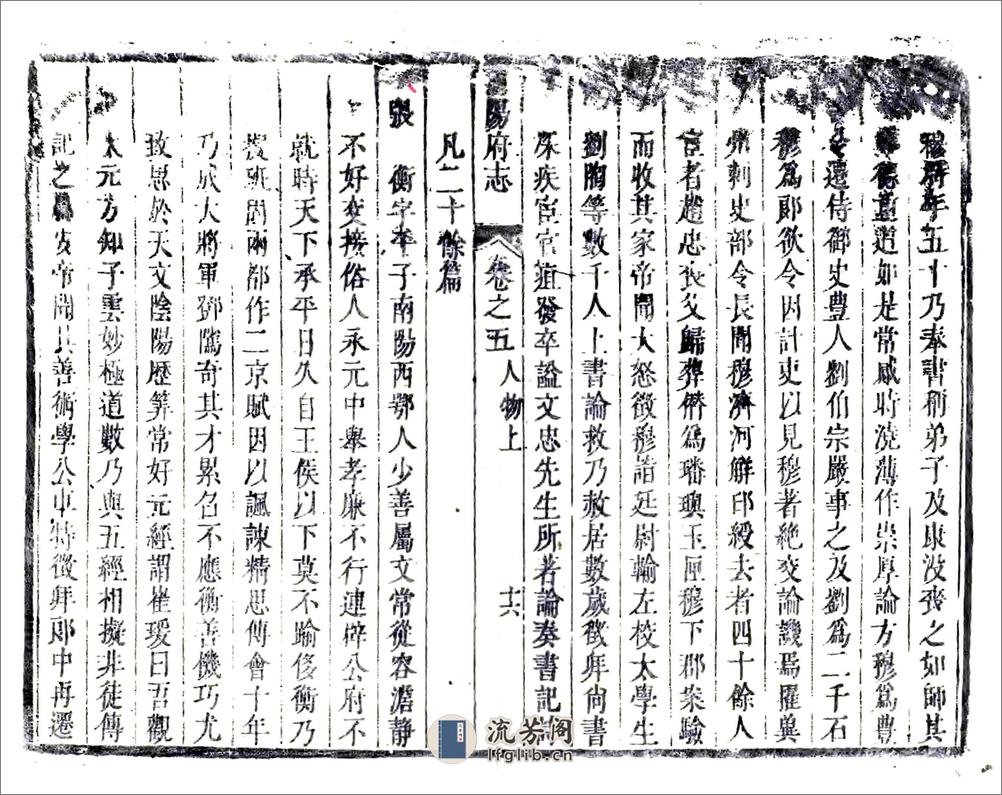 穆時年五十乃奉書稱弟子及康沒喪之如師其
尊德重道如是常感時澆薄作崇厚論方穆爲豐
令遷侍御史豐人劉伯宗嚴事之及劉爲二千石
穆爲郎欲令因計吏以見穆者絶交論譏焉擢兾
州刺史部令長聞穆濟河解印綬去者四十餘人
宦者趙忠喪父歸葬僭爲璠璵玉匣穆下郡案驗
而收其家帝聞大怒徵穆詣廷尉輸左校太學生
劉陶等數千人上書論救乃赦居數歲徵拜尚書
深疾宦官疽發卒謚文忠先生所著論奏書記
凡二十餘篇
陽府志
卷之五 人物上
十六
張 衡字平子南陽西鄂人少善屬文常從容澹静
不好交接俗人永元中舉孝廉不行連辟公府不
就時天下承平日久自王侯以下莫不踰侈衡乃
擬班固兩都作二京賦因以諷諫精思傳會十年
乃成大將軍鄧隲奇其才累召不應衡善機巧尤
致思於天文陰陽歷筭常好元經謂崔瑗曰吾觀
太元方知子雲妙極道數乃與五經相擬非徒傳
記之屬安帝聞其善術學公車特徵拜郎中再遷
流芳阁
lfglib.cn